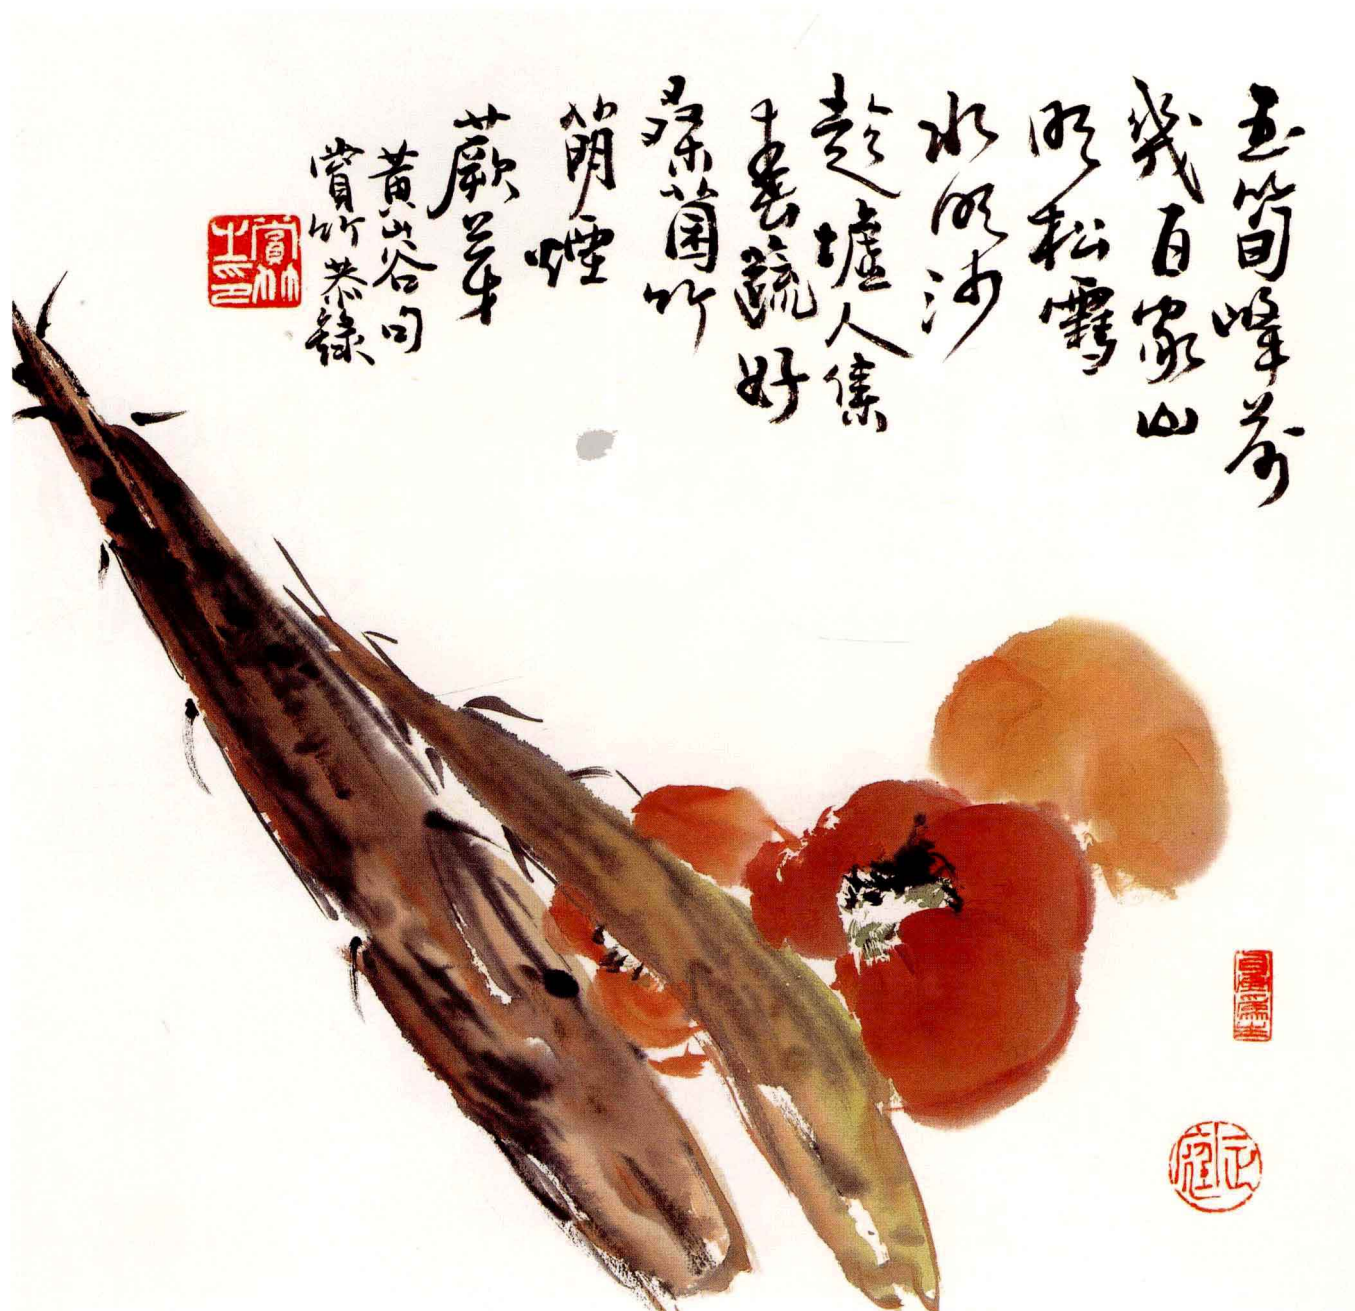 玉笥峰前
幾百家山
明松雪
水明沙
趁墟人集
春蔬好
桑菌竹
萌煙
蕨芽
黃山谷句
賞竹恭錄
賞竹
士印